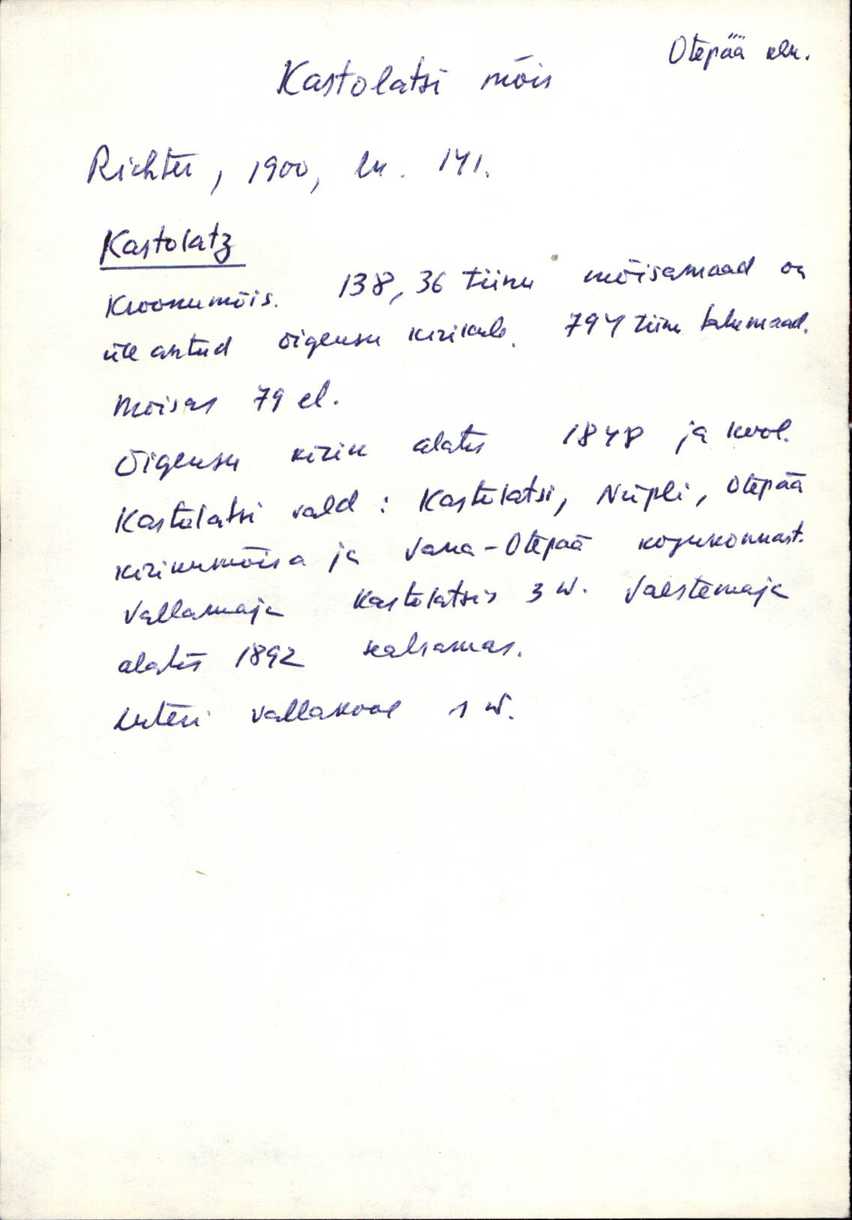 Otepää khk.
Kastolatsi mõis
Richter, 1900, lk. 141.
Kastolatz
Kroonumõis. 138,36 tiinu mõisamaad on
üle antud õigeusu kirikule. 794 tiinu talumaad.
Mõisas 79 el.
Õigeusu kirik alates 1848 ja kool.
Kastolatsi vald: Kastolatsi, Nüpli, Otepää
kirikumõisa ja Vana-Otepää kogukonnast.
Vallamaja Kastolatsis 3 w. Vaestemaja
alates 1892 sealsamas.
Luteri vallakool 1 w.